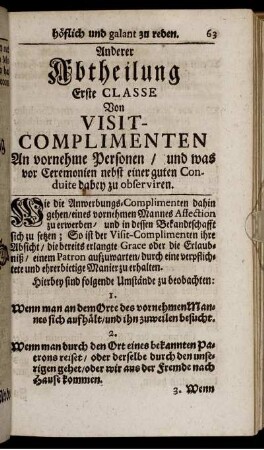 höflich und galant zu reden. 63
Anderer
Abtheilung
Erste CLASSE
Von
VISIT-
COMPLIMENTEN
An vornehme Personen / und was
vor Ceremonien nebst einer guten Con-
duite dabey zu observiren.
Wie die Anwerbungs-Complimenten dahin
gehen / eines vornehmen Mannes Affection
zu erwerben / und in dessen Bekandschafft
sich zu setzen; So ist der Visit-Complimenten ihre
Absicht / die bereits erlangte Grace oder die Erlaub-
niß / einem Patron aufzuwarten / durch eine verpflich-
tete und ehrerbietige Manier zu erhalten.
Hierbey sind folgende Umstände zu beobachten:
1.
Wenn man an dem Orte des vornehmen Man-
nes sich aufhält / und ihn zuweilen besucht.
2.
Wenn man durch den Ort eines bekannten Pa-
trons reiset / oder derselbe durch den unse-
rigen gehet / oder wir aus der Fremde nach
Hause kommen.
3. Wenn